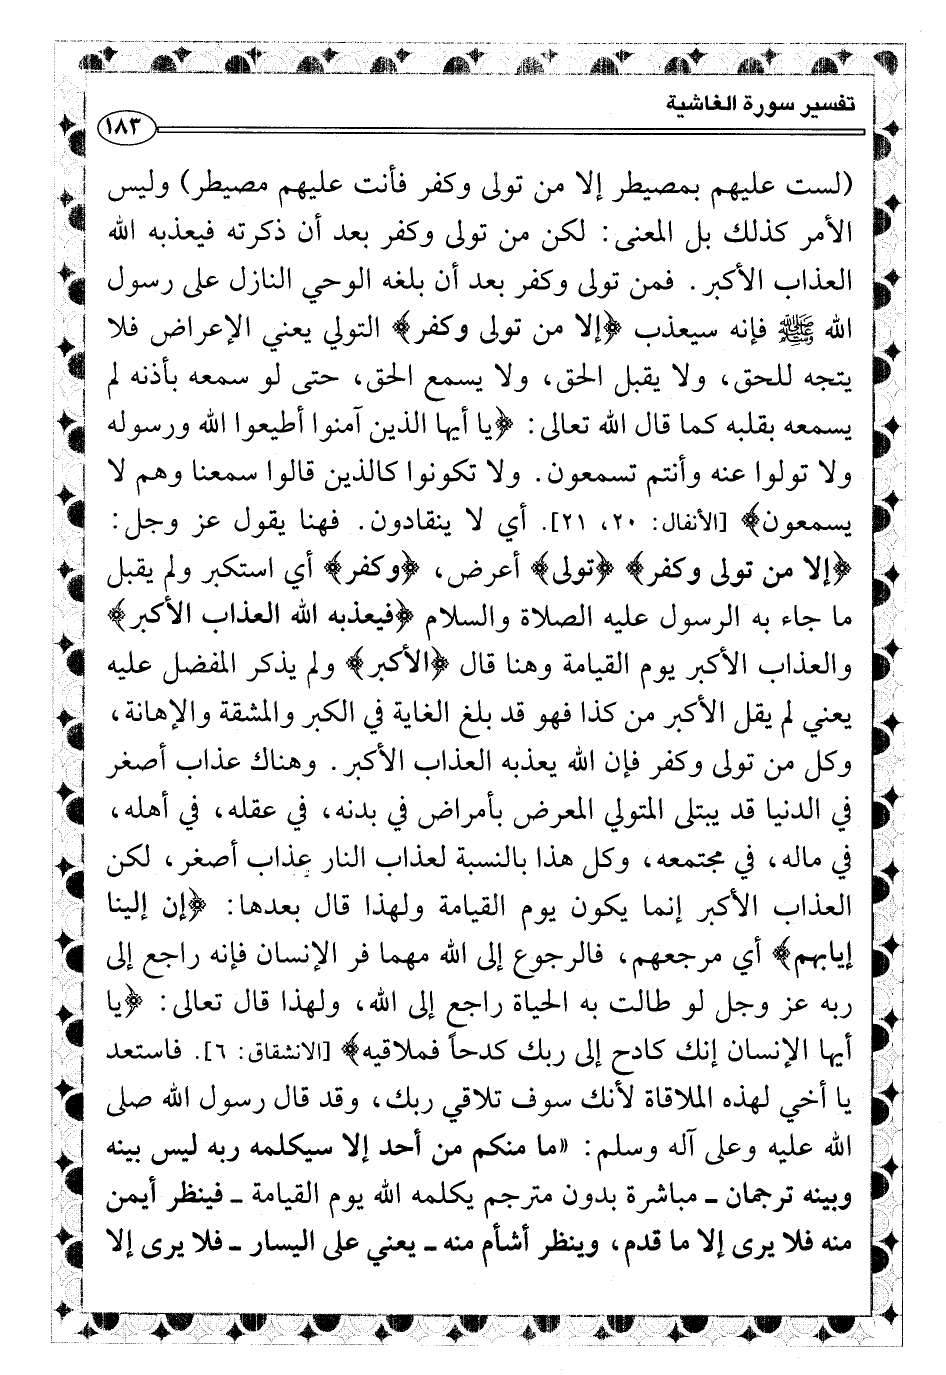 تفسير سورة الغاشية
١٨٣
(لست عليهم بمصيطر إلا من تولى وكفر فأنت عليهم مصيطر) وليس
الأمر كذلك بل المعنى: لكن من تولى وكفر بعد أن ذكرته فيعذبه الله
العذاب الأكبر. فمن تولى وكفر بعد أن بلغه الوحي النازل على رسول
الله ﷺ فإنه سيعذب ﴿إلا من تولى وكفر﴾ التولي يعني الإعراض فلا
يتجه للحق، ولا يقبل الحق، ولا يسمع الحق، حتى لو سمعه بأذنه لم
يسمعه بقلبه كما قال الله تعالى: ﴿يا أيها الذين آمنوا أطيعوا الله ورسوله
ولا تولوا عنه وأنتم تسمعون. ولا تكونوا كالذين قالوا سمعنا وهم لا
يسمعون﴾ [الأنفال: ٢٠، ٢١]. أي لا ينقادون. فهنا يقول عز وجل:
﴿إلا من تولى وكفر﴾ ﴿تولى﴾ أعرض، ﴿وكفر﴾ أي استكبر ولم يقبل
ما جاء به الرسول عليه الصلاة والسلام ﴿فيعذبه الله العذاب الأكبر﴾
والعذاب الأكبر يوم القيامة وهنا قال ﴿الأكبر﴾ ولم يذكر المفضل عليه
يعني لم يقل الأكبر من كذا فهو قد بلغ الغاية في الكبر والمشقة والإهانة،
وكل من تولى وكفر فإن الله يعذبه العذاب الأكبر. وهناك عذاب أصغر
في الدنيا قد يبتلى المتولي المعرض بأمراض في بدنه، في عقله، في أهله،
في ماله، في مجتمعه، وكل هذا بالنسبة لعذاب النار عذاب أصغر، لكن
العذاب الأكبر إنما يكون يوم القيامة ولهذا قال بعدها: ﴿إن إلينا
إيابهم﴾ أي مرجعهم، فالرجوع إلى الله مهما فر الإنسان فإنه راجع إلى
ربه عز وجل لو طالت به الحياة راجع إلى الله، ولهذا قال تعالى: ﴿يا
أيها الإنسان إنك كادح إلى ربك كدحاً فملاقيه﴾ [الانشقاق: ٦]. فاستعد
يا أخي لهذه الملاقاة لأنك سوف تلاقي ربك، وقد قال رسول الله صلى
الله عليه وعلى آله وسلم: «ما منكم من أحد إلا سيكلمه ربه ليس بينه
وبينه ترجمان ـ مباشرة بدون مترجم يكلمه الله يوم القيامة ـ فينظر أيمن
منه فلا يرى إلا ما قدم، وينظر أشأم منه ـ يعني على اليسار ـ فلا يرى إلا